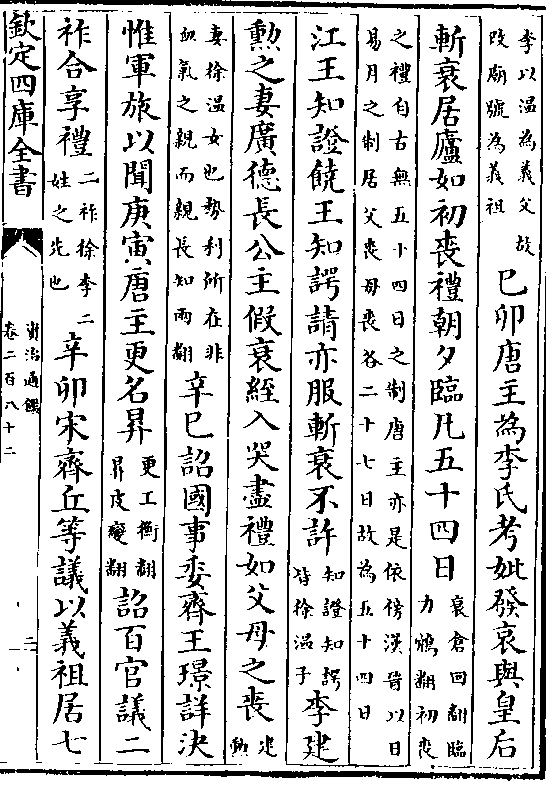 李以温為義父故
改廟號為義祖
己卯唐主為李氏考妣發哀與皇后
斬衰居廬如初喪禮朝夕臨凡五十四日
衰倉回翻臨
力鴆翻初喪
之禮自古無五十四日之制唐主亦是依傍漢晉以日
易月之制居父喪母喪各二十七日故為五十四日
江王知證饒王知諤請亦服斬衰不許
知證知諤
皆徐温子
李建
勲之妻廣德長公主假衰絰入哭盡禮如父母之喪
建
勲
妻徐温女也勢利所在非
血氣之親而親長知兩翻
辛巳詔國事委齊王璟詳決
惟軍旅以聞庚寅唐主更名昪
更工衡翻
昪皮變翻
詔百官議二
祚合享禮
二祚徐李二
姓之先也
辛卯宋齊丘等議以義祖居七
欽定四庫全書
資治通鑑
卷二百八十二
二